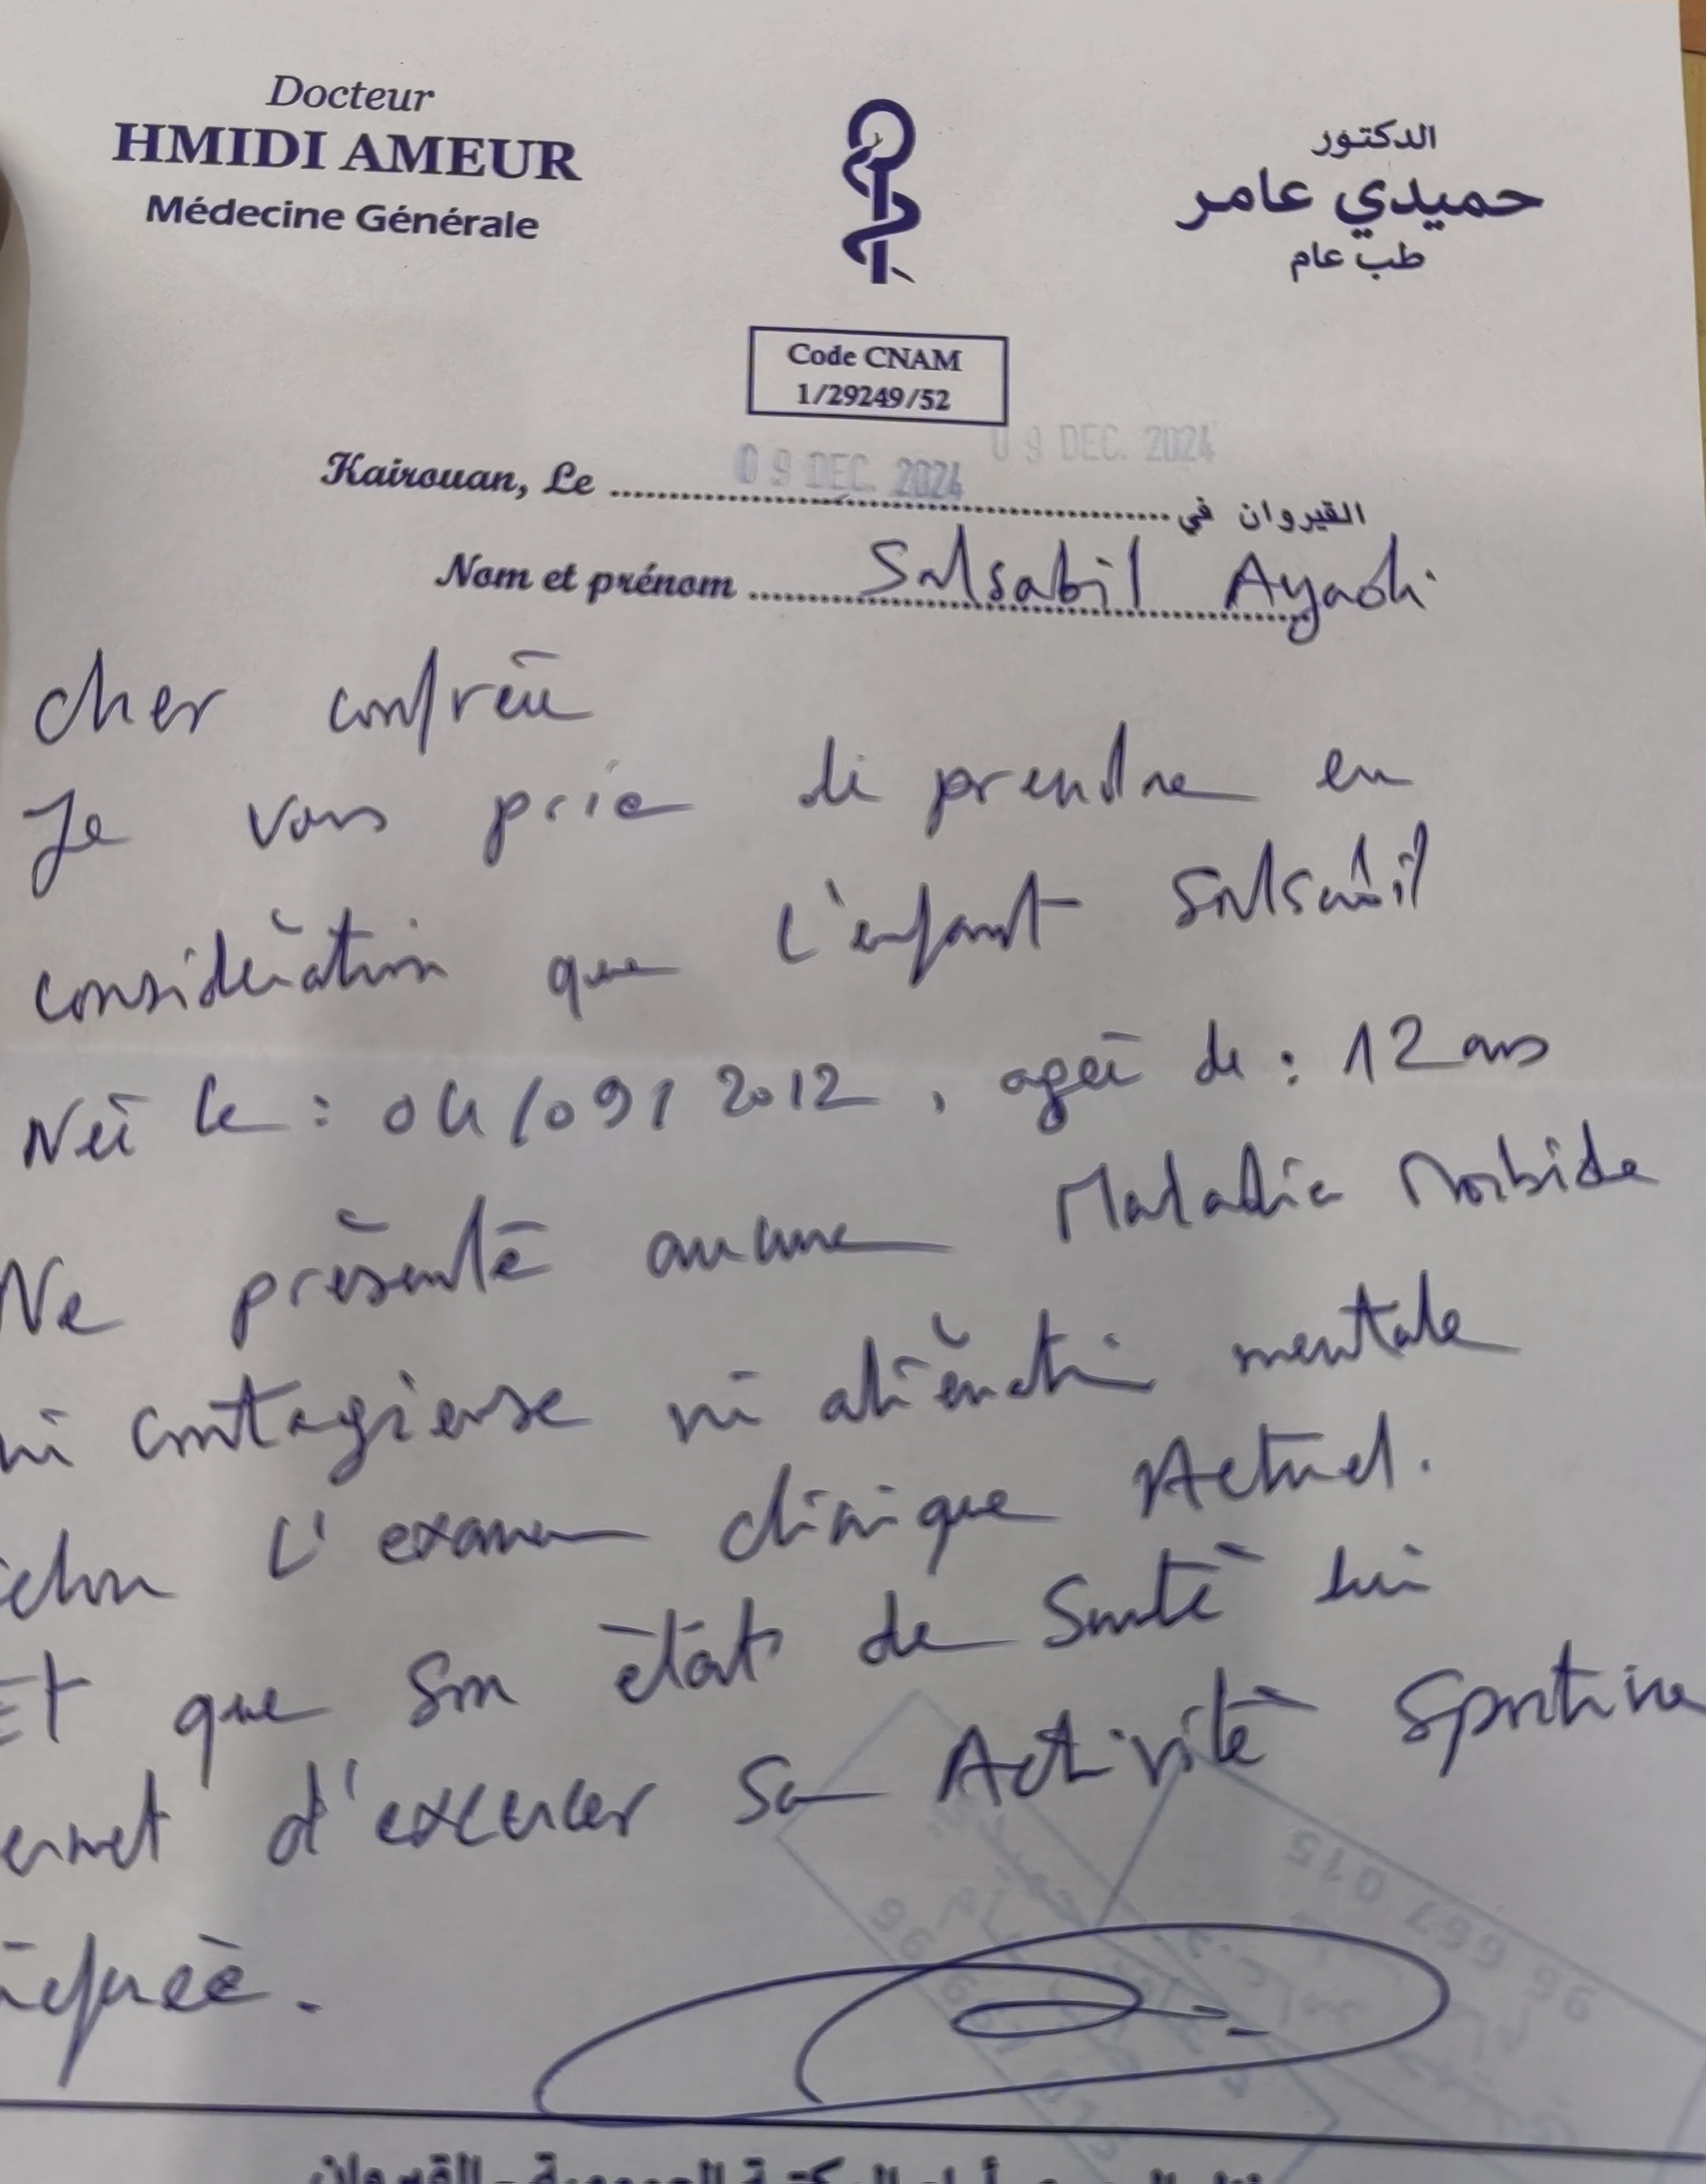 Docteur
HMIDI AMEUR
Médecine Générale
الدكتور
حميدي عامر
طب عام
Code CNAM
1/29249/52
09 DEC. 2024
Kairouan, Le 09 DEC. 2024 القيروان في
Nom et prénom Salsabil Ayachi
cher confrère
Je vous prie de prendre en
considération que l'enfant Salsabil
Née le : 04/09/2012, agée de : 12 ans
Ne présenté aucune Maladie Morbide
ni contagieuse ni aliénation mentale
selon l'examen clinique Actuel.
Et que son état de Santé lui
permet d'exercer sa Activité Sportive
96 667 015